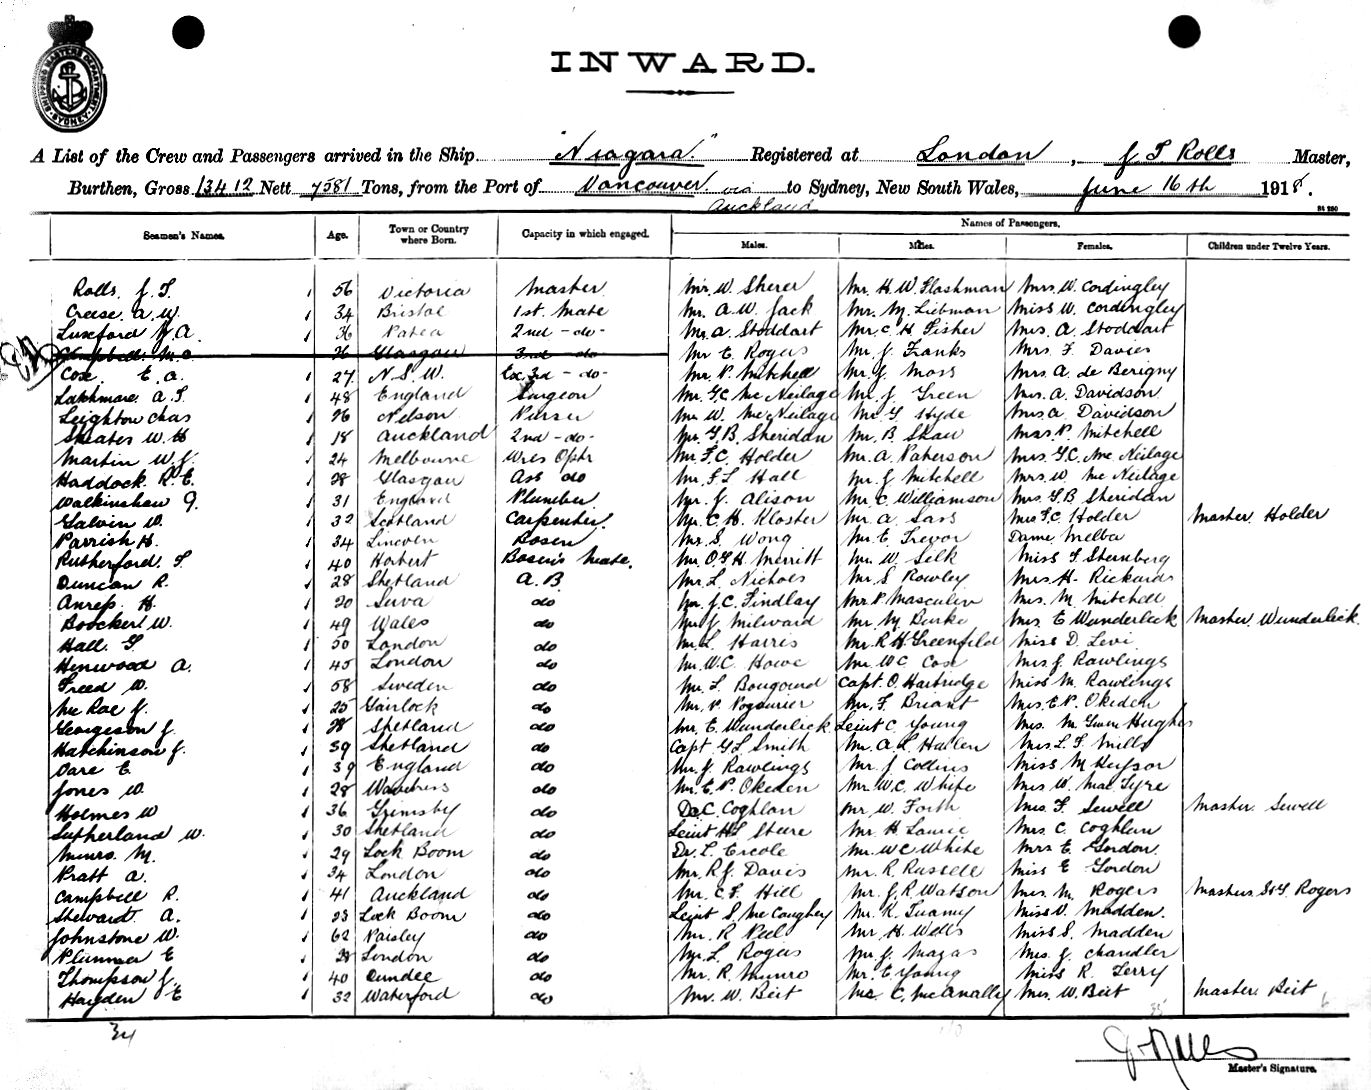 SHIPPING MASTER'S DEPARTMENT SYDNEY
INWARD.
A List of the Crew and Passengers arrived in the Ship "Niagara" Registered at London, J T Rolls Master,
Burthen, Gross 13412 Nett 7581 Tons, from the Port of Vancouver via Auckland to Sydney, New South Wales, June 16th 1918.
Seamen's Names. Age. Town or Country where Born. Capacity in which engaged. Names of Passengers.
Males. Males. Females. Children under Twelve Years.
Rolls. J. T. 1 56 Victoria Master Mr. W. Sherer Mr. H. W. Flashman Mrs W. Cordingley
Creese. A. W. 1 34 Bristol 1st. Mate Mr. A. W. Jack Mr. M. Liebman Miss W. Cordingley
Luxford A. 1 36 Patea 2nd -do- Mr A. Stoddart Mr C. H. Fisher Mrs. A. Stoddart
Campbell. M. 26 Glasgow 3rd do Mr E. Rogers Mr J. Franks Mrs. F. Davies
Cox. E. A. 1 27 N. S. W. Ex 3rd -do- Mr P. Mitchell Mr J. Moss Mrs. A. de Berigny
A. T. 1 48 England Surgeon Mr. G. C. Mc Neilage Mr. J. Green Mrs. A. Davidson
Leighton Chas 1 26 Nelson Purser Mr W. Mc Neilage Mr. G. Hyde Mrs A. Davidson
Sheates W. H 1 18 Auckland 2nd -do- Mr. G. B. Sheridan Mr. B. Shaw Mrs P. Mitchell
Martin W. J. 1 24 Melbourne Wres Optr Mr. F. C. Holder Mr. A. Paterson Mrs. G. C. Mc Neilage
Haddock R. E. 1 28 Glasgow Ass do Mr. F L Hall Mr J Mitchell Mrs. W. Mc Neilage
Walkinshaw G. 1 31 England Plumber Mr J. Alison Mr C Williamson Mrs. G. B Sheridan
Galvin W. 1 32 Scotland Carpenter. Mr. C. H. Kloster Mr A. Sass Mrs F. C. Holder Master Holder
Parrish H. 1 34 Lincoln Bosen Mr. S. Wong Mr. E. Trevor Dame Melba
Rutherford. T 1 40 Hobart Bosen's Mate. Mr. O. G. H. Merritt Mr. W. Silk Miss F. Sternberg
Duncan R. 1 28 Shetland A. B. Mr. L. Nichols Mr. S Rowley Mrs H. Rickards
H. 1 20 Suva do Mr. J. C. Findlay Mr P. Masculin Mrs. M. Mitchell
W. 1 49 Wales do Mr J. Milward Mr. M. Burke Mrs. E Wunderlich Master Wunderlich.
Hall. G. 1 50 London do Mr L. Harris Mr. R. H. Greenfield Miss D. Levi.
Henwood A. 1 45 London do Mr. W. C. Howe Mr. W. C Cox Mrs J. Rawlings
Freed W. 1 58 Sweden do Mr. L. Bougourd Capt. O. Harbridge Miss M. Rawlings
Mc Rae J. 1 25 Gairlock do Mr. P. Mr. F. Briant Mrs. E. P. Okeden
Georgeson J. 1 28 Shetland do Mr. E. Wunderlich Lieut C Young Mrs. M. Gwen Hughes
Hutchinson J. 1 39 Shetland do Capt G L Smith Mr. A. L Hallen Mrs. L. F. Mills
Dare E. 1 39 England do Mr J. Rawlings Mr. J Collins Miss M
Jones W. 1 28 do Mr. E. P. Okeden Mr. W. C. White Mrs W. Mac Tyre
Holmes W 1 36 Grimsby do Dr C. Coghlan Mr W. Forth Mrs F. Sewell Master. Sewell
Sutherland W. 1 30 Shetland do Lieut H. L. Steere Mr. H Laurie Mrs. C. Coghlan
Munro. M. 1 29 Lock Boom do Dr. L. Ercole Mr. W. C White Mrs E. Gordon.
Pratt A. 1 34 London do Mr. R. J. Davis Mr. R. Russell Miss E Gordon
Campbell R. 1 41 Auckland do Mr. C. F. Hill Mr. J. R. Watson Mrs. M. Rogers Masters S & G Rogers
Steward. A. 1 23 Lock Boom do Lieut S. Mc Caughey Mr. K. Tuamy Miss V. Madden.
Johnstone W. 1 62 Paisley do Mr. R Peel Mr H. Wells Miss S. Madden
Plummer E 1 28 London do Mr. L Rogers Mr. J. Magas Mrs. J. Chandler
Thompson J. 1 40 Dundee do Mr. R. Munro Mr. E. Young Miss R. Terry
Hayden E 1 32 Waterford do Mr. W. Beit Mr. C. McAnally Mrs. W. Beit Master Beit
34
Master's Signature.